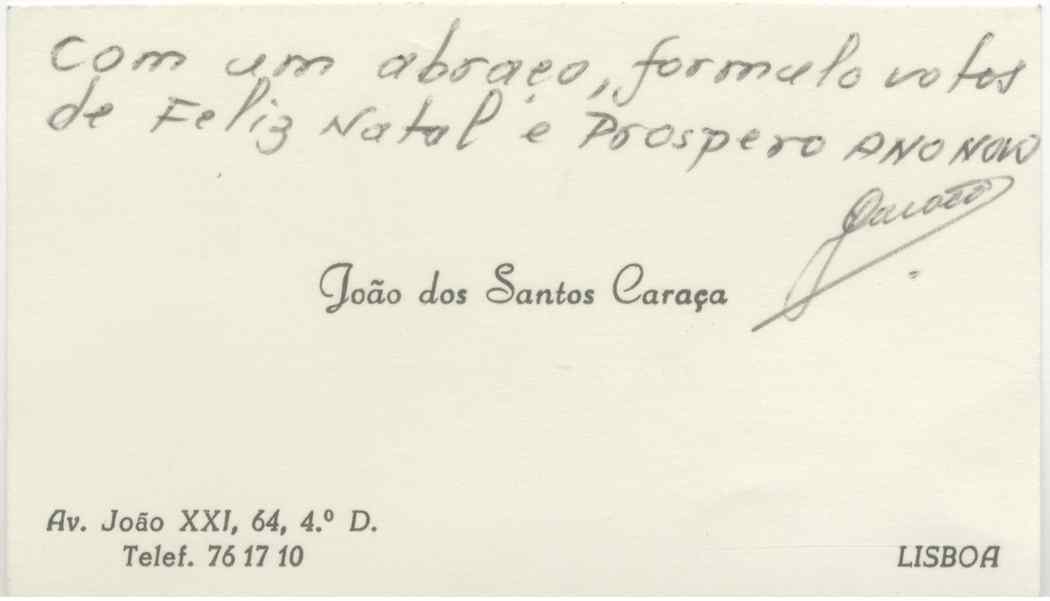 Com um abraço, formulo votos
de Feliz Natal e Prospero ANO NOVO
Caraça
João dos Santos Caraça
Av. João XXI, 64, 4.º D.
Telef. 76 17 10
LISBOA